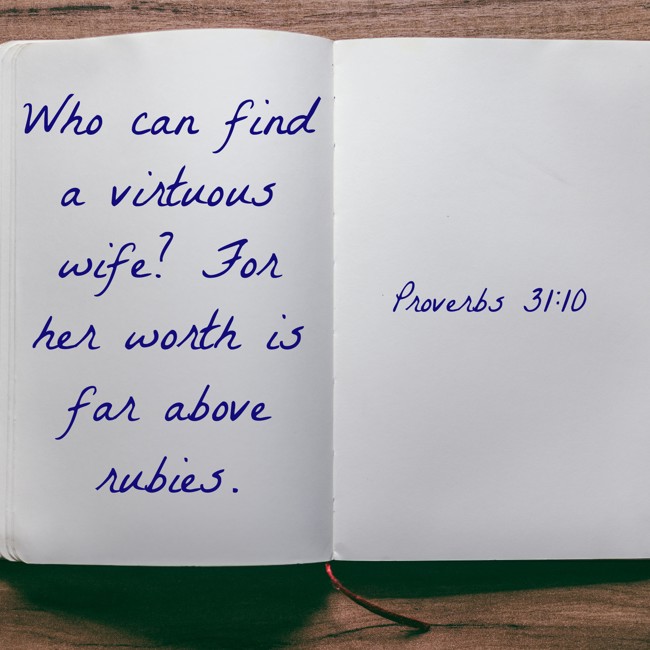 Who can find
a virtuous
wife? For
her worth is
far above
rubies.
Proverbs 31:10